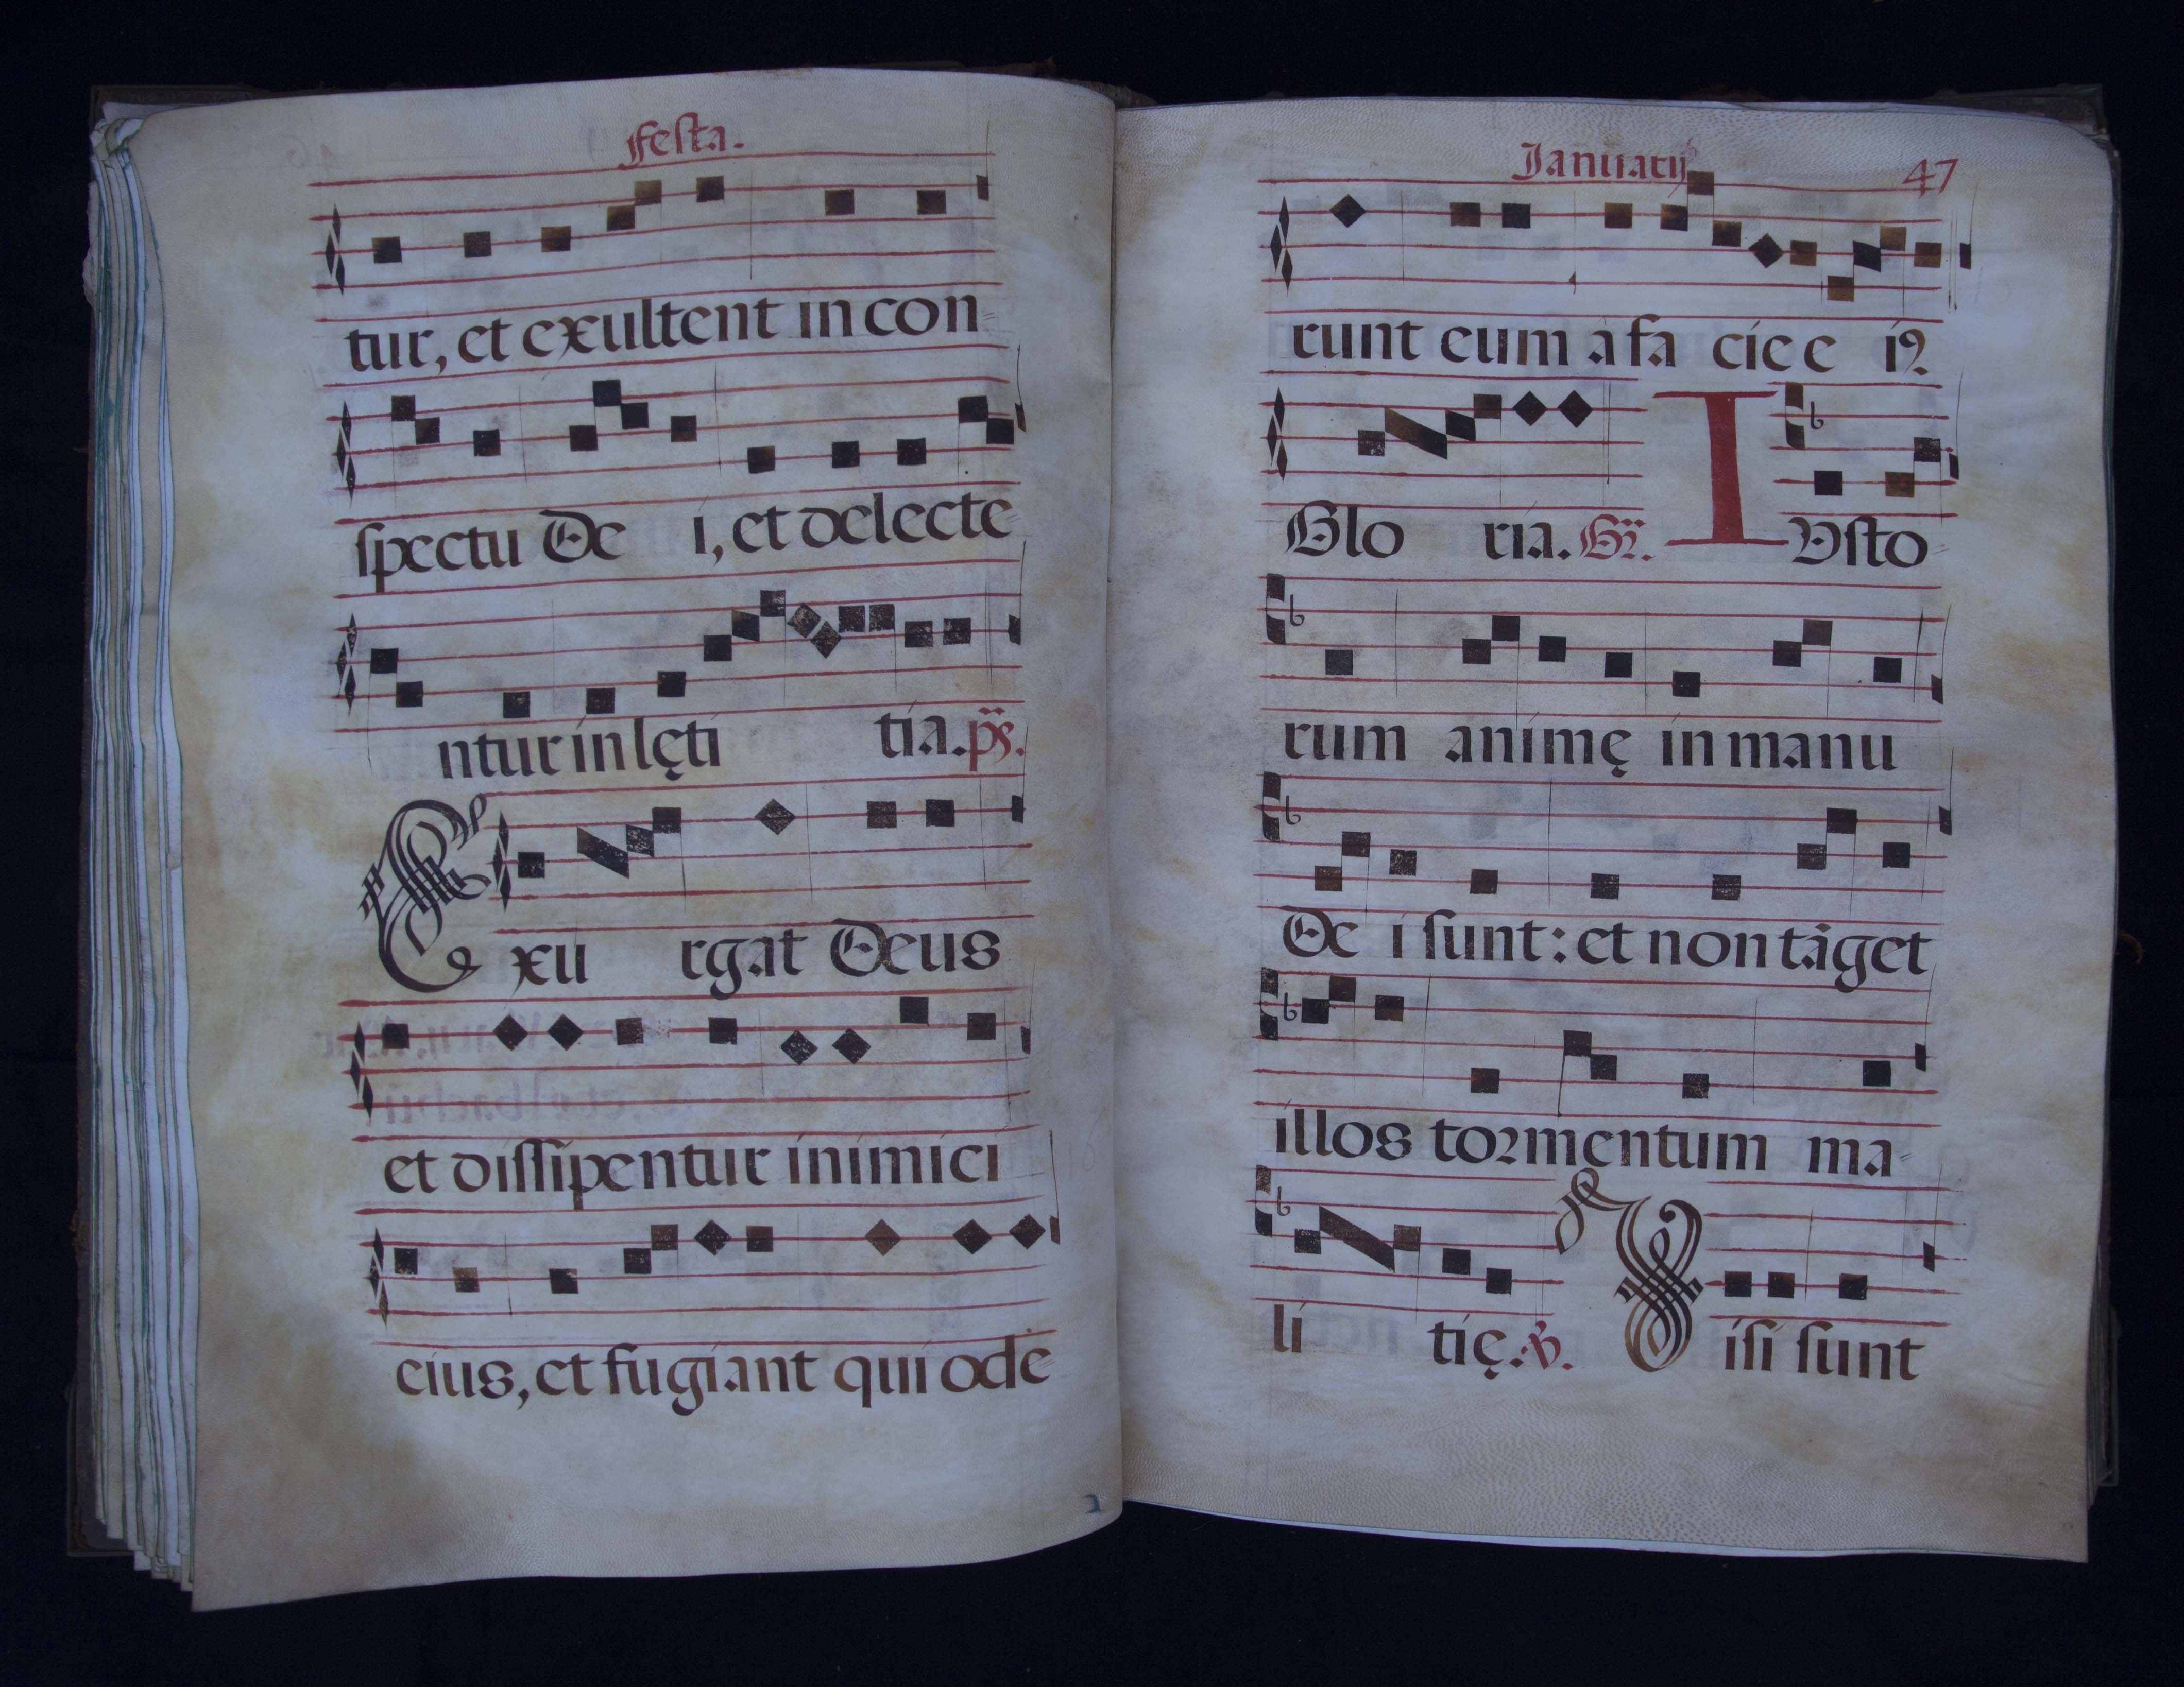 Festa.
tur, et exultent in con-
spectu De i, et delecte-
ntur in lęti tia. ps.
Exu rgat Deus
et dissipentur inimici
eius, et fugiant qui ode-
Ianuarij
47
runt eum à fa cie e iꝰ
Glo ria. Gr. IVsto-
rum animę in manu
De i sunt: et non tãget
illos tormentum ma-
li tię. ℣. Visi sunt